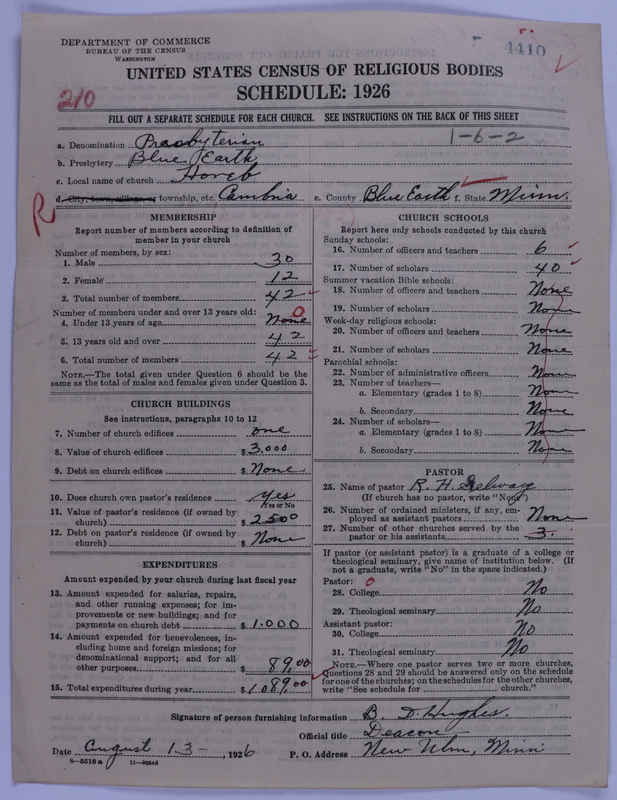 DEPARTMENT OF COMMERCE
BUREAU OF THE CENSUS
WASHINGTON
4410
UNITED STATES CENSUS OF RELIGIOUS BODIES
SCHEDULE: 1926
210
FILL OUT A SEPARATE SCHEDULE FOR EACH CHURCH. SEE INSTRUCTIONS ON THE BACK OF THIS SHEET
1-6-2
a. Denomination Presbyterian
b. Presbytery Blue Earth
c. Local name of church Horeb
d. City, town, village, or township, etc. Cambria e. County Blue Earth f. State Minn.
R
MEMBERSHIP
Report number of members according to definition of
member in your church
Number of members, by sex:
1. Male 30
2. Female 12
3. Total number of members 42
Number of members under and over 13 years old: 0
4. Under 13 years of age None
5. 13 years old and over 42
6. Total number of members 42
NOTE.—The total given under Question 6 should be
same as the total of males and females given under Question 3.
CHURCH BUILDINGS
See instructions, paragraphs 10 to 12
7. Number of church edifices one
8. Value of church edifices $ 3,000
9. Debt on church edifices $ None
10. Does church own pastor's residence yes
Yes or No
11. Value of pastor's residence (if owned by
church) $ 2500
12. Debt on pastor's residence (if owned by
church) $ None
EXPENDITURES
Amount expended by your church during last fiscal year
13. Amount expended for salaries, repairs,
and other running expenses; for im-
provements or new buildings; and for
payments on church debt $ 1.000
14. Amount expended for benevolences, in-
cluding home and foreign missions; for
denominational support; and for all
other purposes $ 89,00
15. Total expenditures during year $ 1.089,00
CHURCH SCHOOLS
Report here only schools conducted by this church
Sunday schools:
16. Number of officers and teachers 6
17. Number of scholars 40
Summer vacation Bible schools:
18. Number of officers and teachers None
19. Number of scholars None
Week-day religious schools:
20. Number of officers and teachers None
21. Number of scholars None
Parochial schools:
22. Number of administrative officers None
23. Number of teachers—
a. Elementary (grades 1 to 8) None
b. Secondary None
24. Number of scholars—
a. Elementary (grades 1 to 8) None
b. Secondary None
PASTOR
25. Name of pastor R. H.
(If church has no pastor, write "None")
26. Number of ordained ministers, if any, em-
ployed as assistant pastors None
27. Number of other churches served by the
pastor or his assistants 3.
If pastor (or assistant pastor) is a graduate of a college or
theological seminary, give name of institution below. (If
not a graduate, write "No" in the space indicated.)
Pastor: 0
28. College No
29. Theological seminary No
Assistant pastor:
30. College No
31. Theological seminary No
NOTE.—Where one pastor serves two or more churches,
Questions 28 and 29 should be answered only on the schedule
for one of the churches; on the schedules for the other churches,
write "See schedule for church."
Signature of person furnishing information B. D. Hughes.
Official title Deacon
Date August 13- , 1926 P. O. Address New Ulm, Minn
8—5518 a